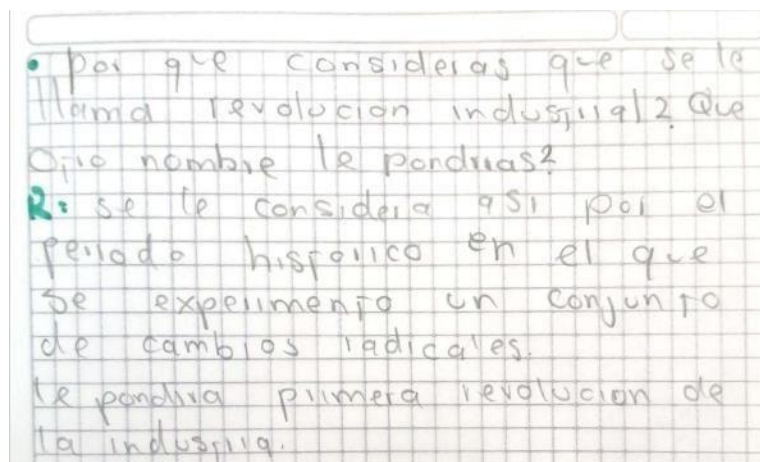 • por que consideras que se le
llama revolucion industrial? Que
Otro nombre le pondrias?
R: se le considera asi por el
periodo historico en el que
se experimento un conjunto
de cambios radicales.
le pondria primera revolucion de
la industria.